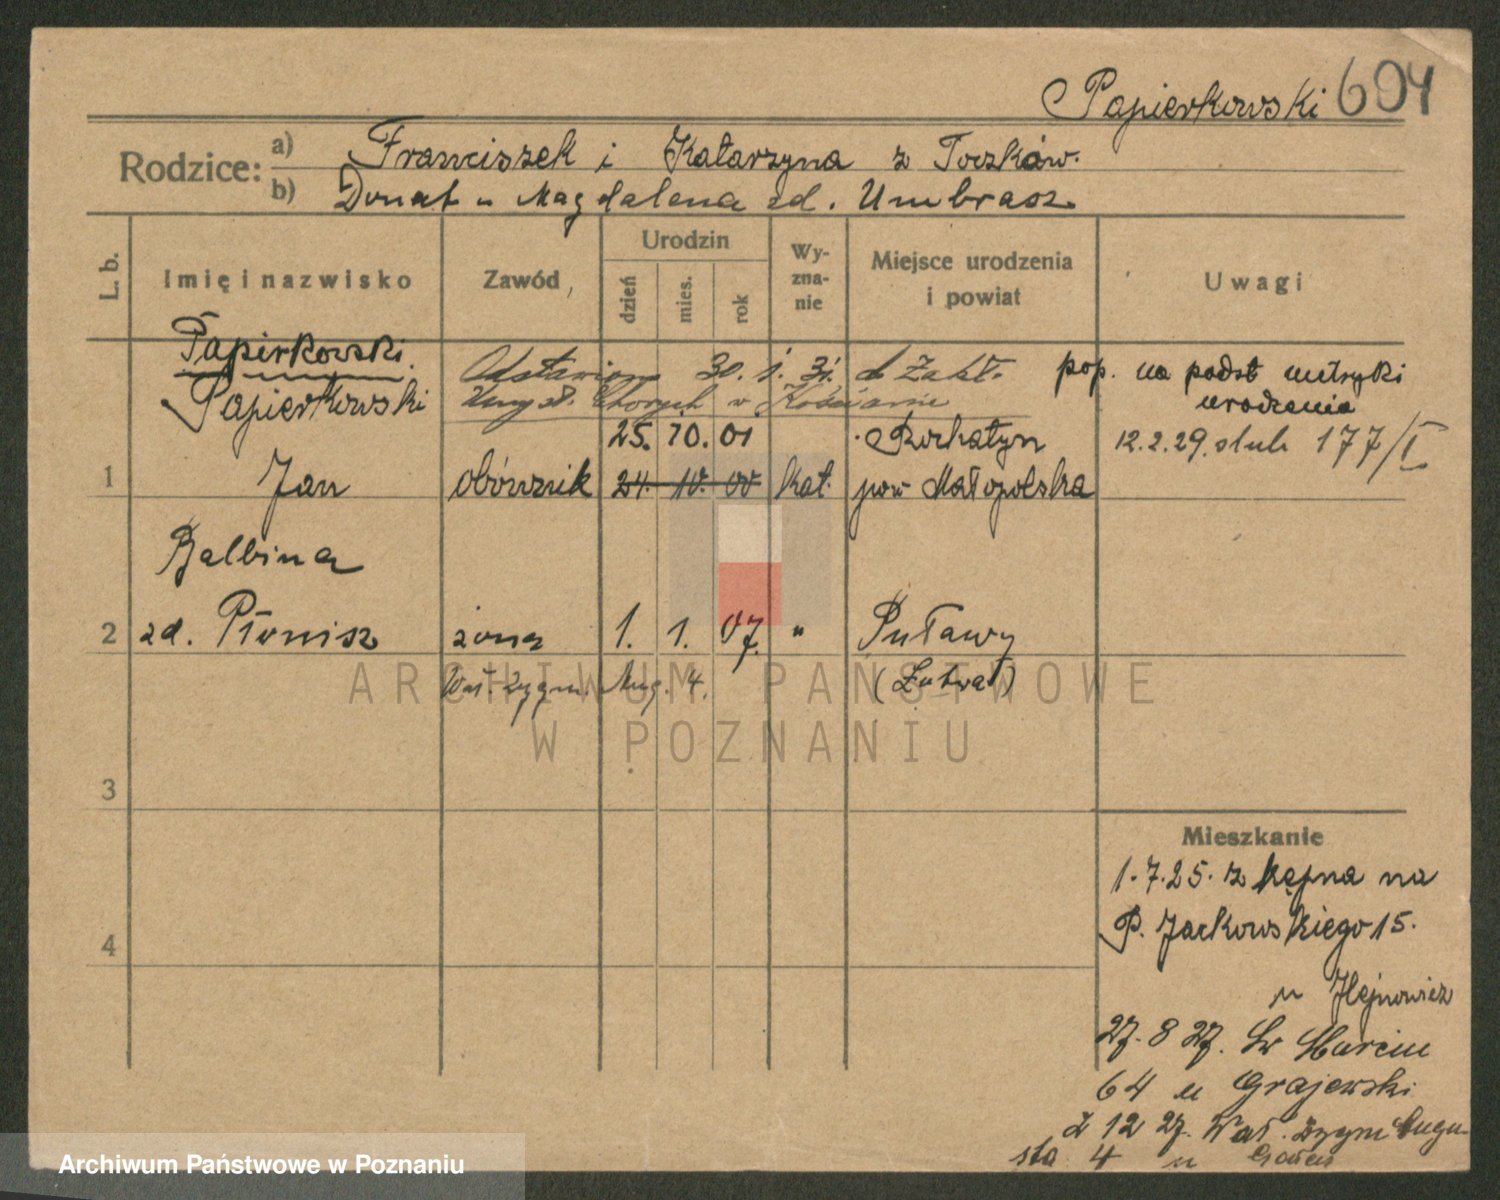 Papierkowski 604
Rodzice: a) Franciszek i Katarzyna z Toczków.
b) Donat u Magdalena zd. Umbrasz
L. b.
Imię i nazwisko
Zawód
Urodzin
dzień
mies.
rok
Wy-
zna-
nie
Miejsce urodzenia
i powiat
Uwagi
Papirkowski.
Papierkowski
Odstawiony 30. 1. 31. d Zakł.
Umysł. Chorych w Kościanie
pop. na podst metryki
urodzenia
25. 10. 01
Rohatyn
12.2.29. ślub 177/I
1 Jan obówznik 24. 10. 00 kat. pow Małopolska
Balbina
2 zd. Płonisz żona 1. 1. 07. " Puławy
Wał. Zygm. Aug. 4. (Łotwa)
3
4
Mieszkanie
1.7.25. z Kępna na
P. Jackowskiego 15.
u Hejnowicz
27. 8 27. Św Marcin
64 u Grajewski
2 12 27. Wał. Zygm Augu-
sta 4 u
ARCHIWUM PAŃSTWOWE
W POZNANIU
Archiwum Państwowe w Poznaniu